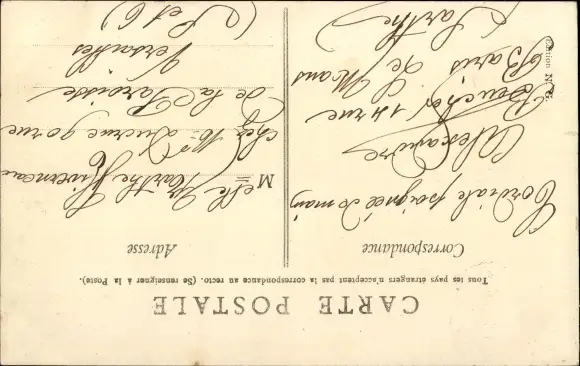 CARTE POSTALE
Tous les pays étrangers n'acceptent pas la correspondance au recto. (Se renseigner à la Poste).
Correspondance
Cordiale poignée de main
Alexandre
Bouchet 14 rue
Paris Le Mans
Sarthe
Adresse
Melle Marthe Niverneau
chez Mr Ducrue 90 rue
de la Paroisse
Versailles
(S et O)